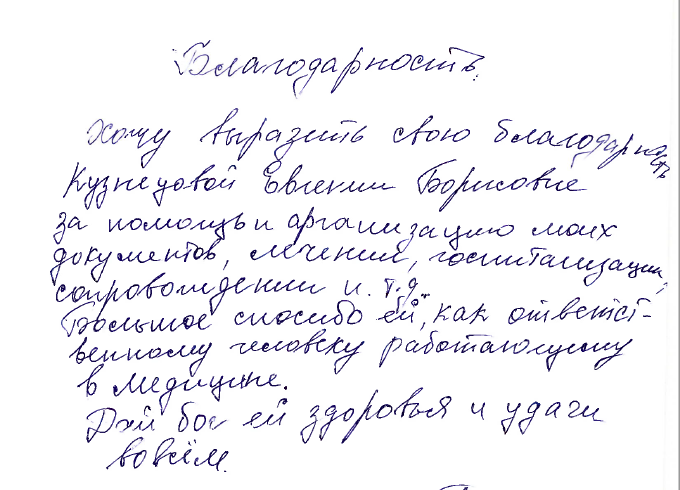 Благодарность.
Хочу выразить свою благодарность
Кузнецовой Евгении Борисовне
за помощь и организацию моих
документов, лечении, госпитализации,
сопровождении и т.д.
Большое спасибо ей, как ответст-
венному человеку работающему
в медицине.
Дай бог ей здоровья и удачи
во всём.